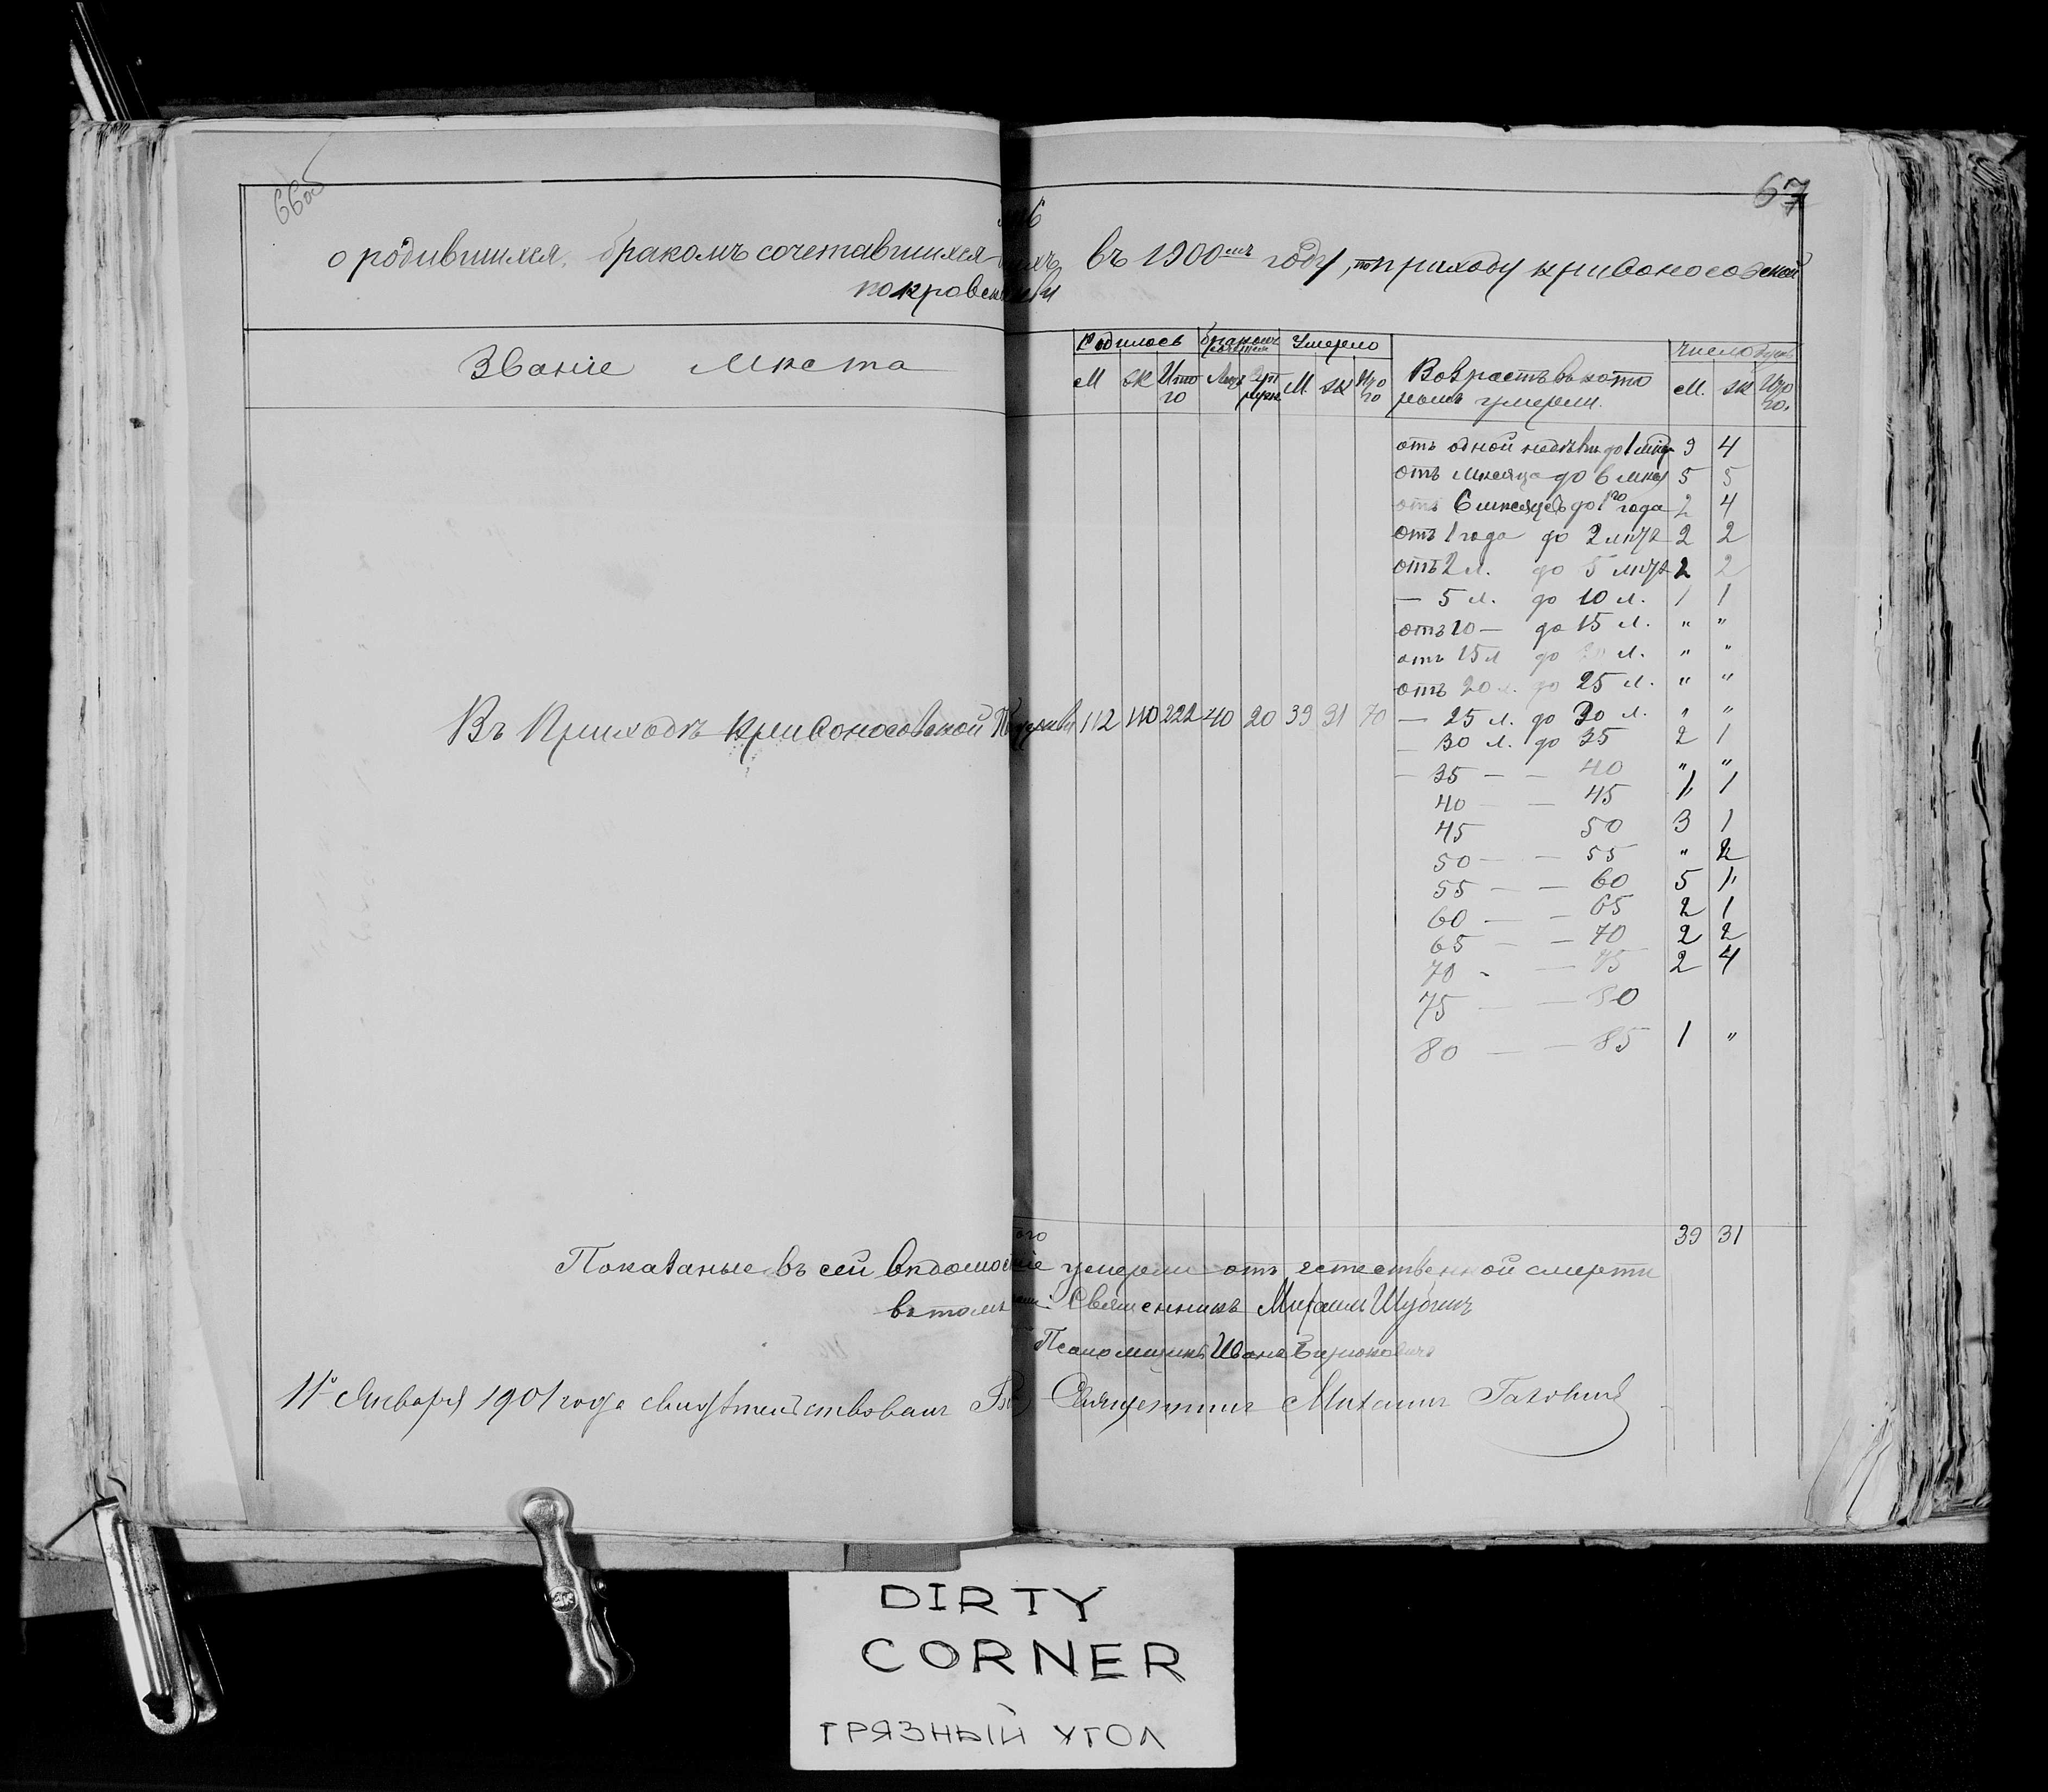 66об
67
о родившихся, бракомъ сочетавшихся въ 1900мъ году, по приходу Кривоносовской
Покровской
Званіе Мѣста
Родилось Бракомъ Умерло Возрастъ въ кото Число душъ
М Ж Ито М Ж Ито ромъ умерли. М. Ж Ито
го го го.
отъ одной недѣли до 1 мѣс 9 4
отъ мѣсяца до 6 мѣс 5 5
отъ 6 мѣсяцевъ до 1го года 2 4
отъ 1 года до 2 лѣтъ 2 2
отъ 2 л. до 5 лѣтъ 2 2
— 5 л. до 10 л. 1 1
отъ 10 — до 15 л. " "
отъ 15 л до 20 л. " "
отъ 20 л. до 25 л. " "
Въ Приходѣ Кривоносовской Церкви 112 110 222 40 20 39 31 70 — 25 л. до 30 л. " "
— 30 л. до 35 2 1
— 35 — — 40 " "
40 — — 45 1 1
45 50 3 1
50 — — 55 " 2
55 — — 60 5 1
60 — — 65 2 1
65 — — 70 2 2
70 - — 75 2 4
75 — — 80
80 — — 85 1 "
39 31
Показаные въ сей вѣдомости умерли отъ естественной смерти
въ томъ Священникъ Михаилъ
Псаломщикъ Иванъ
11го Января 1901 года свидѣтельствовалъ Священникъ Михаилъ
DIRTY
CORNER
ГРЯЗНЫЙ УГОЛ